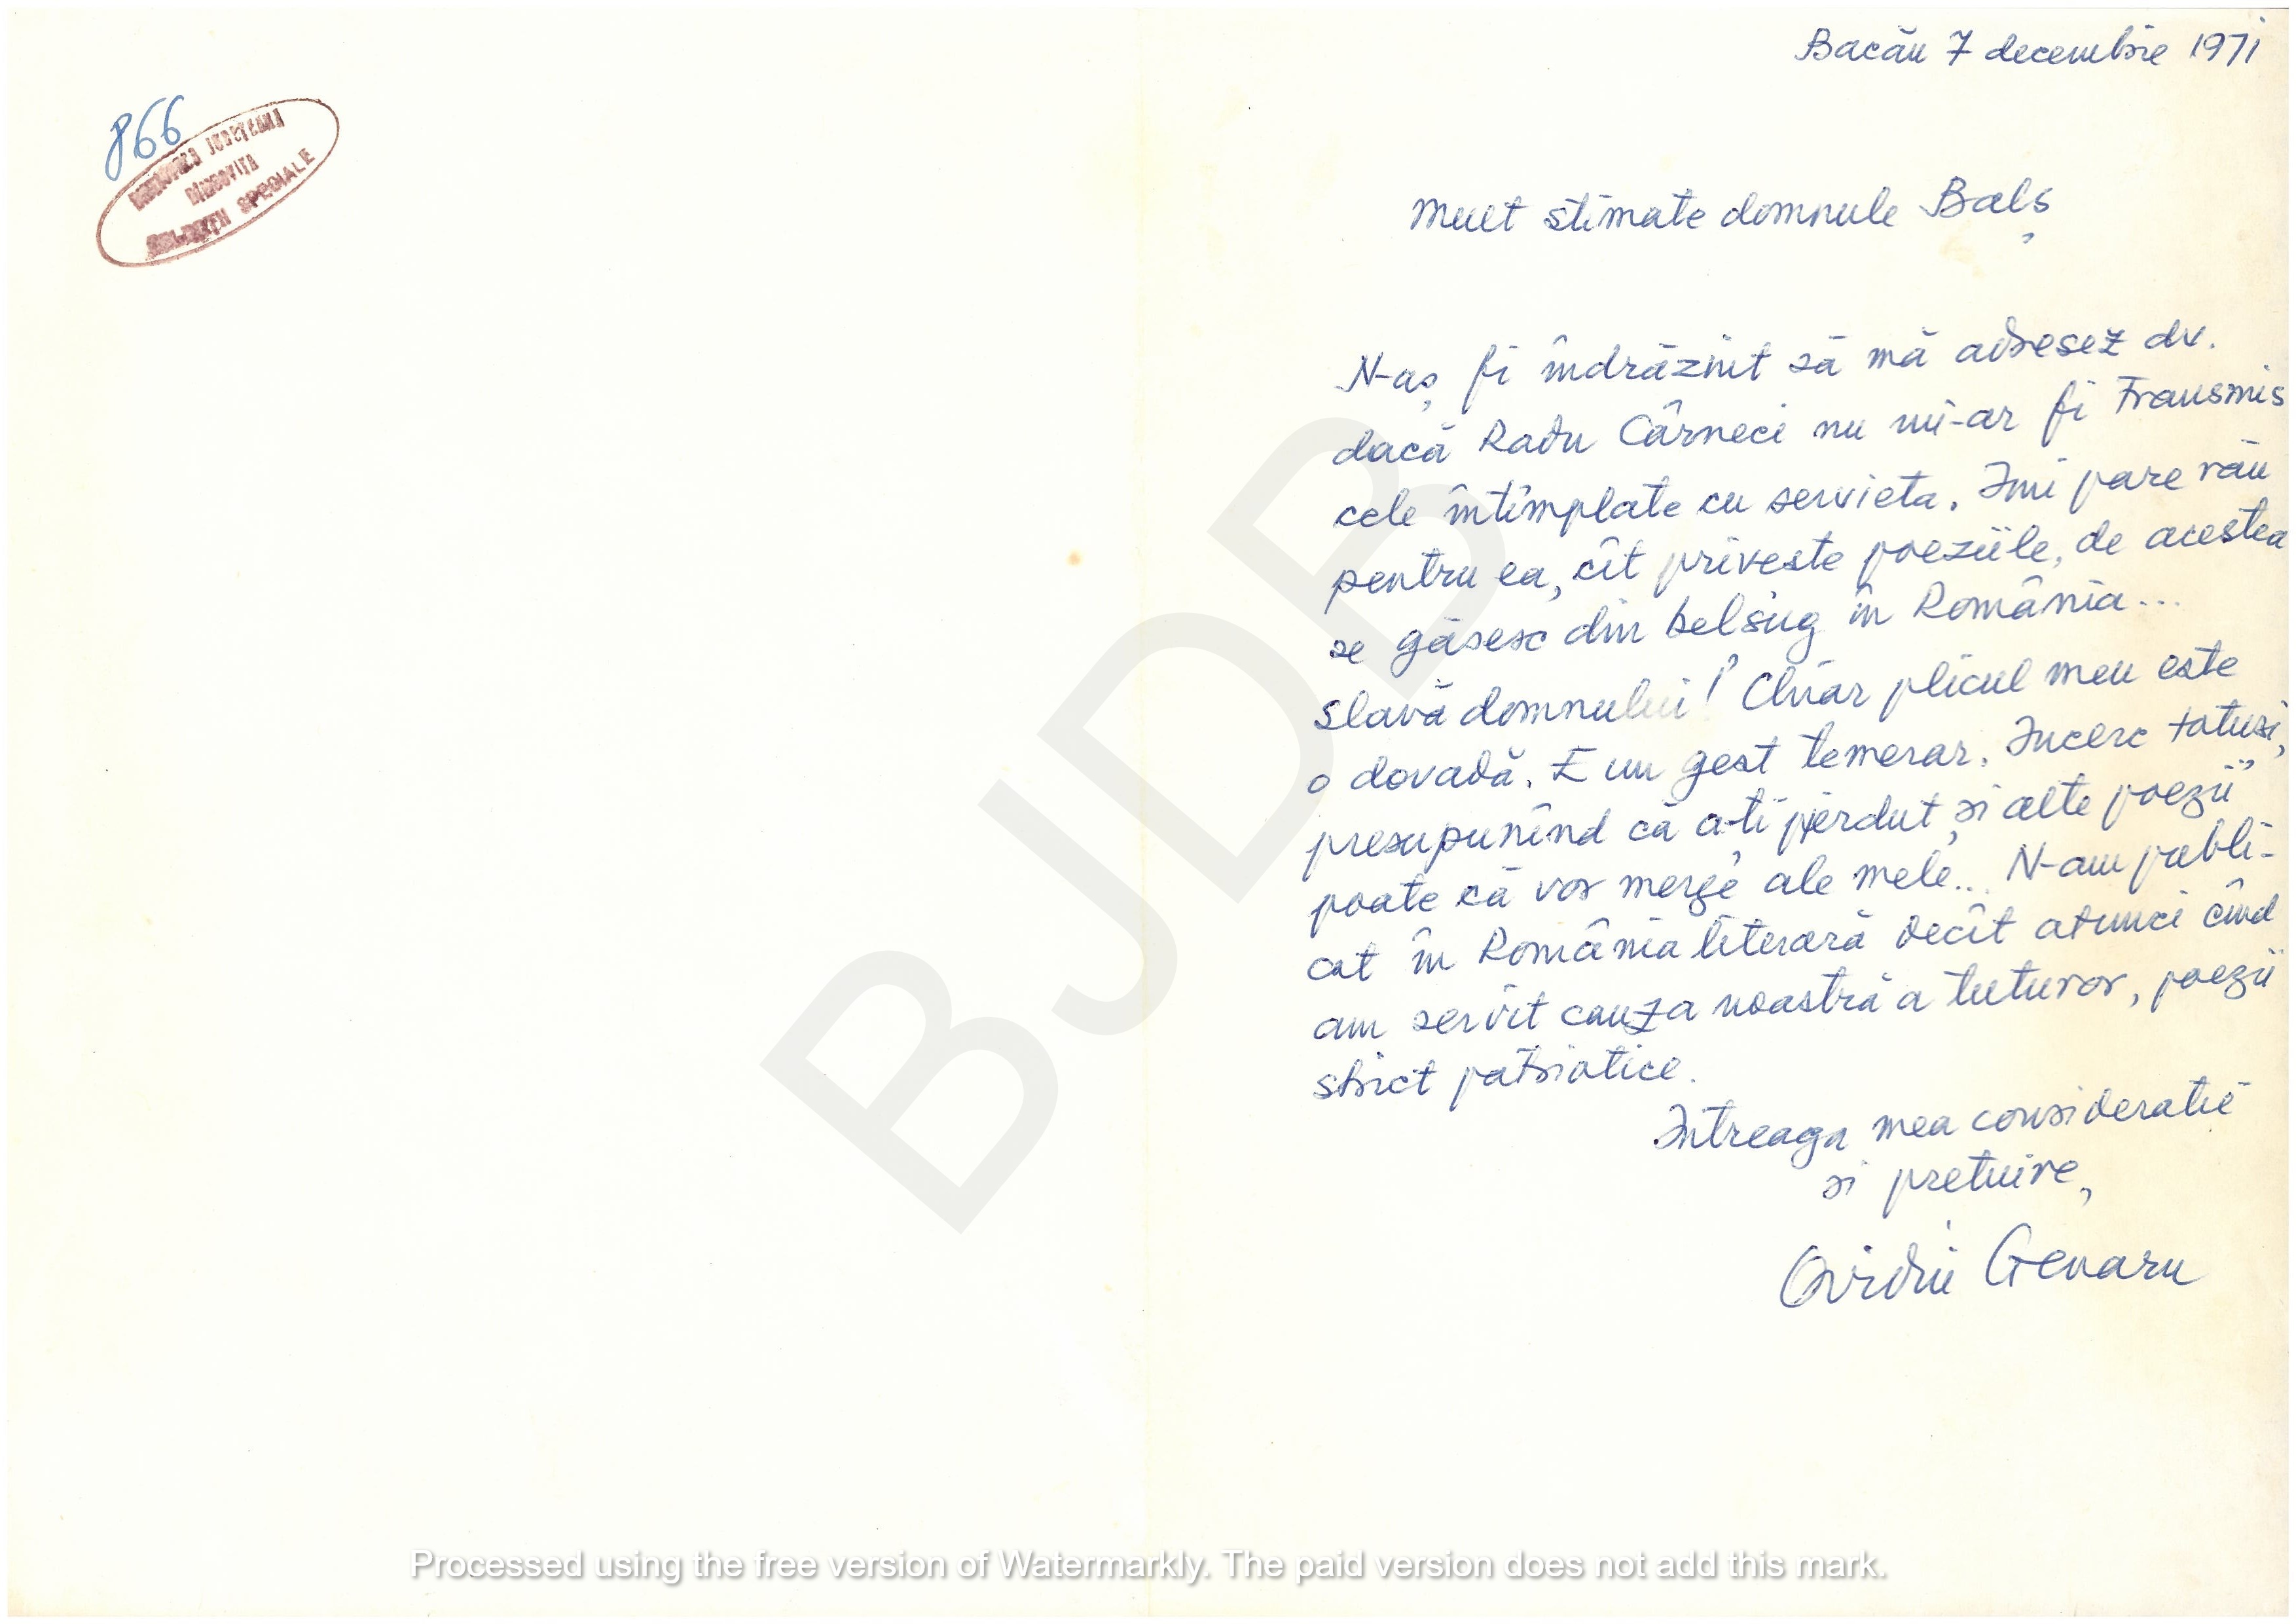 866
BIBLIOTECA JUDEȚEANĂ
DÎMBOVIȚA
COLECȚII SPECIALE
Bacău 7 decembrie 1971
Mult stimate domnule Balș
N-aș fi îndrăznit să mă adresez dv.
dacă Radu Cârneci nu mi-ar fi transmis
cele întîmplate cu servieta. Îmi pare rău
pentru ea, cît priveste poeziile, de acestea
se găsesc din belsug în România...
slavă domnului! Chiar plicul meu este
o dovadă. E un gest temerar. Încerc totusi,
presupunînd că a-ti pierdut și alte poezii
poate că vor merge ale mele... N-am publi-
cat în România literară decît atunci cînd
am servit cauza noastră a tuturor, poezii
strict patriotice.
Întreaga mea consideratie
si pretuire,
Ovidiu Genaru
BJDB
Processed using the free version of Watermarkly. The paid version does not add this mark.